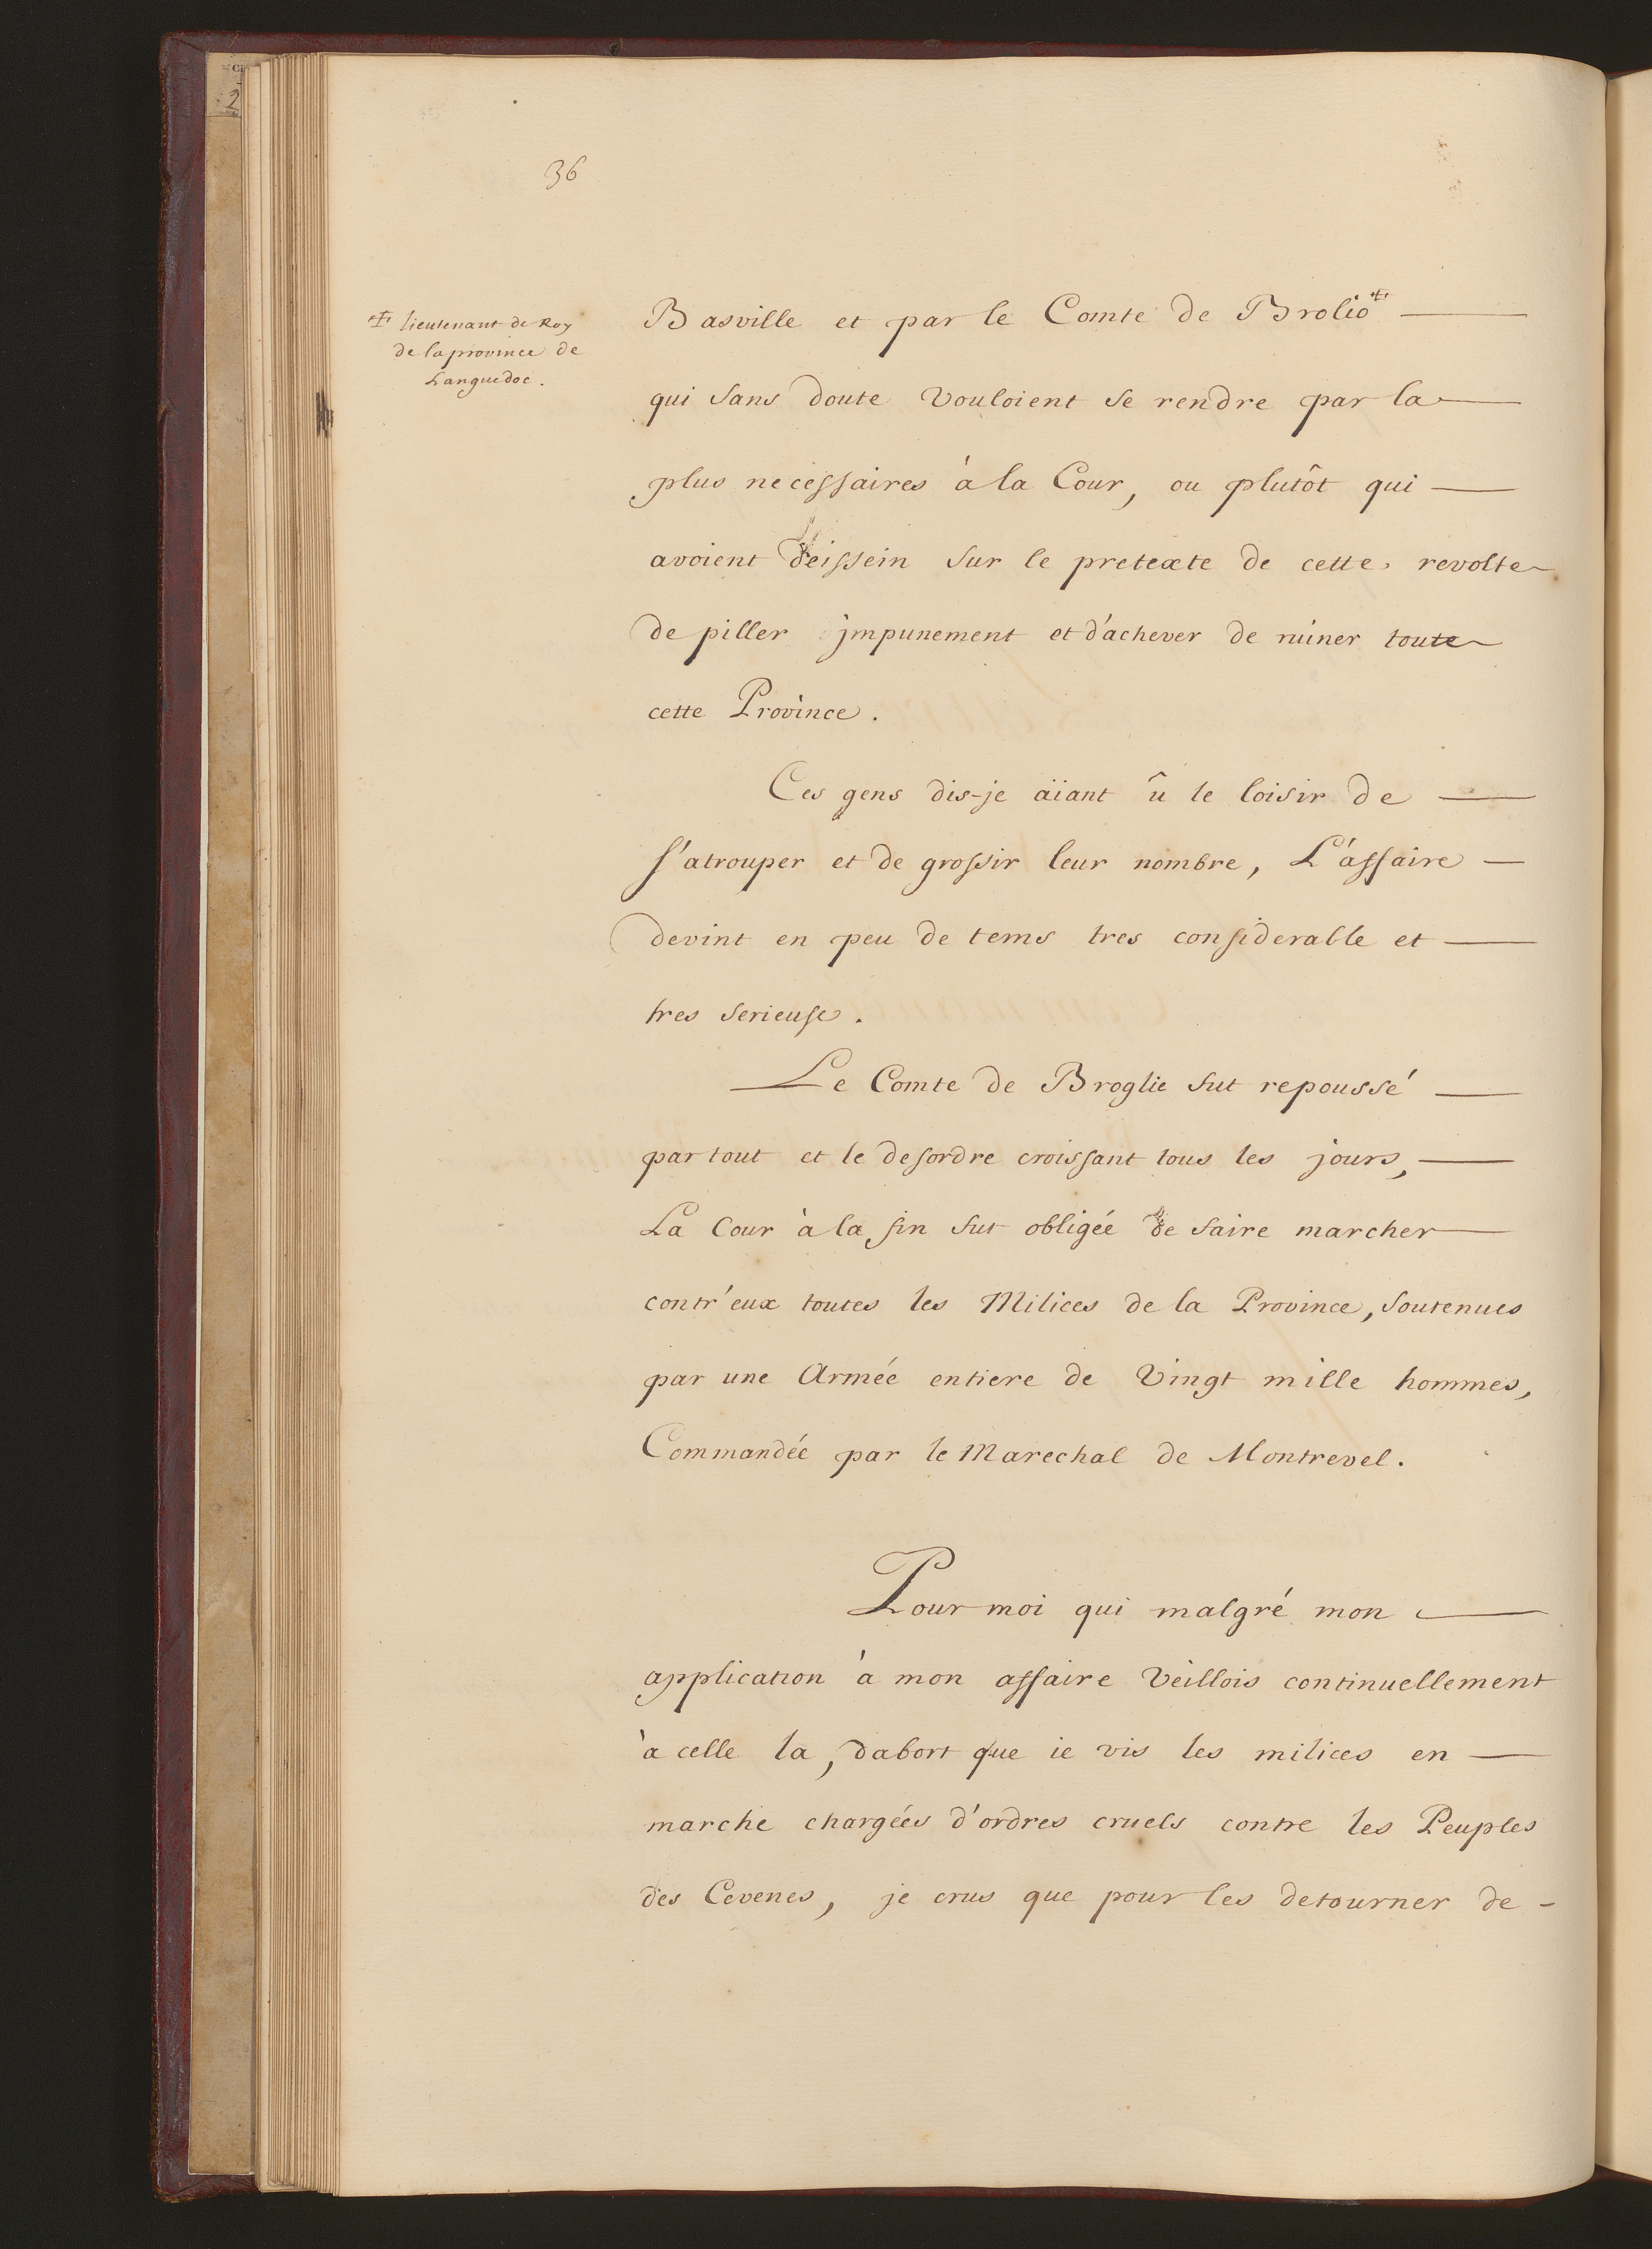 36
‡ lieutenant de Roy
de la province de
Languedoc.
Basville et par le Comte de Brolio ‡
qui sans doute vouloient se rendre par la
plus necessaires à la Cour, ou plutôt qui
avoient deissein sur le pretexte de cette revolte
de piller jmpunement et d'achever de ruiner toute
cette Province.
Ces gens dis-je aïant û le loisir de
s'atrouper et de grossir leur nombre, L'affaire
devint en peu de tems tres considerable et
tres serieuse.
Le Comte de Broglie fut repoussé
par tout et le desordre croissant tous les jours,
La Cour à la fin fut obligée de faire marcher
contr'eux toutes les Milices de la Province, soutenues
par une Armée entiere de Vingt mille hommes,
Commandée par le Marechal de Montrevel.
Pour moi qui malgré mon
application à mon affaire Veillois continuellement
à celle la, dabort que ie vis les milices en
marche chargées d'ordres cruels contre les Peuples
des Cevenes, je crus que pour les detourner de -